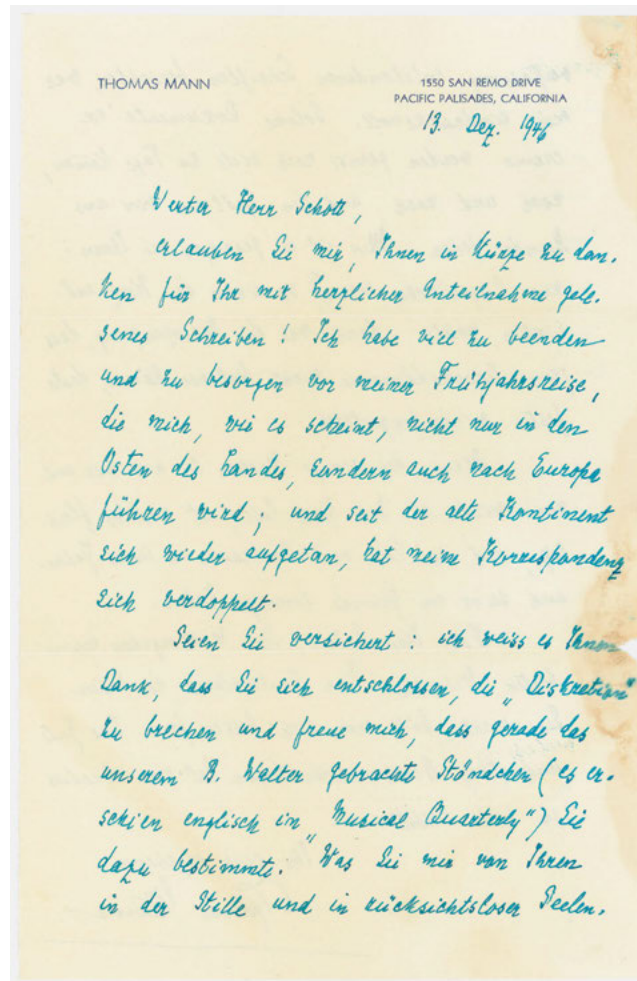 THOMAS MANN
1550 SAN REMO DRIVE
PACIFIC PALISADES, CALIFORNIA
13. Dez. 1946
Werter Herr Schott,
erlauben Sie mir, Ihnen in Kürze zu dan-
ken für Ihr mit herzlicher Anteilnahme gele-
senes Schreiben! Ich habe viel zu beenden
und zu besorgen vor meiner Frühjahrsreise,
die mich, wie es scheint, nicht nur in den
Osten des Landes, sondern auch nach Europa
führen wird; und seit der alte Kontinent
sich wieder aufgetan, hat meine Korrespondenz
sich verdoppelt.
Seien Sie versichert: ich weiss es Ihnen
Dank, dass Sie sich entschlossen, die „Diskretion"
zu brechen und freue mich, dass gerade das
unserem B. Walter gebrachte Ständchen (es er-
schien englisch im „Musical Quarterly") Sie
dazu bestimmte. Was Sie mir von Ihren
in der Stille und in rücksichtsloser Seelen-